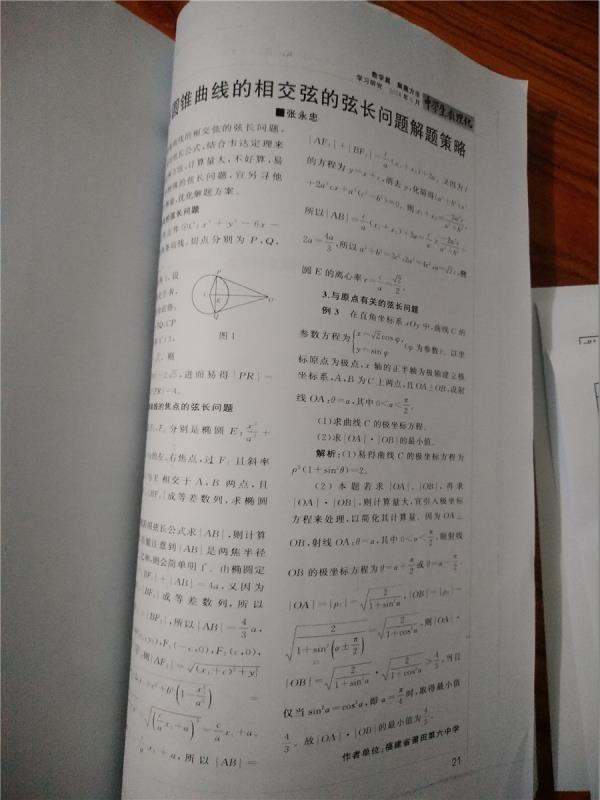 数学篇 解题方法
学习研究 2018年6月 中学生数理化
圆锥曲线的相交弦的弦长问题解题策略
■张永忠
曲线的相交弦的弦长问题,
弦长公式,结合韦达定理来
方法,计算量大,不好算,易
的弦长问题,宜另寻他
优化解题方案。
的弦长问题
⊙C:x²+y²-6x-
切线,切点分别为P,Q,
设
图1
进而易得|PR|=
|PR|=4。
的焦点的弦长问题
F₂分别是椭圆E:x²/a²+
的左、右焦点,过F₁且斜率
与E相交于A,B两点,且
|BF₂|成等差数列,求椭圆
弦长公式求|AB|,则计算
注意到|AB|是两焦半径
之和,则会简单明了。由椭圆定
|BF₂|+|AB|=4a,又因为
|BF₂|成等差数列,所以
|BF₂|,所以|AB|=4/3 a,
F₁(-c,0),F₂(c,0),
则|AF₁|=√((x₁+c)²+y₁²)
x₁²+b²(1-x₁²/a²) =
√((c/a x₁+a)²)=c/a x₁+a,
c/a x₂+a,所以|AB|=
|AF₁|+|BF₁|=c/a(x₁+x₂)+2a,又因为l
的方程为y=x+c,消去y,化简得(a²+b²)x²
+2a²cx+a²(c²-b²)=0。则x₁+x₂=-2a²c/(a²+b²),
所以|AB|=c/a(x₁+x₂)+2a=
2a=4a/3,所以a²+b²=3c²,2a²=4c²,a=√2c,椭
圆E的离心率e=c/a=√2/2。
3.与原点有关的弦长问题
例3 在直角坐标系xOy中,曲线C的
参数方程为{x=√2cosφ, y=sinφ (φ为参数)。以坐
标原点为极点,x轴的正半轴为极轴建立极
坐标系,A,B为C上两点,且OA⊥OB,设射
线OA:θ=α,其中0<α<π/2。
(1)求曲线C的极坐标方程。
(2)求|OA|·|OB|的最小值。
解析:(1)易得曲线C的极坐标方程为
ρ²(1+sin²θ)=2。
(2)本题若求|OA|、|OB|,再求
|OA|·|OB|,则计算量大,宜引入极坐标
方程来处理,以简化其计算量。因为OA⊥
OB,射线OA:θ=α,其中0<α<π/2,则射线
OB的极坐标方程为θ=α+π/2或θ=α-π/2。
|OA|=|ρ₁|=√(2/(1+sin²α)),|OB|=|ρ₂|=
√(2/(1+sin²(α±π/2)))=√(2/(1+cos²α)),则|OA|·
|OB|=√(2/(1+sin²α))·√(2/(1+cos²α))≥4/3,当且
仅当sin²α=cos²α,即α=π/4时,取得最小值
4/3。故|OA|·|OB|的最小值为4/3。
作者单位:福建省莆田第六中学
21